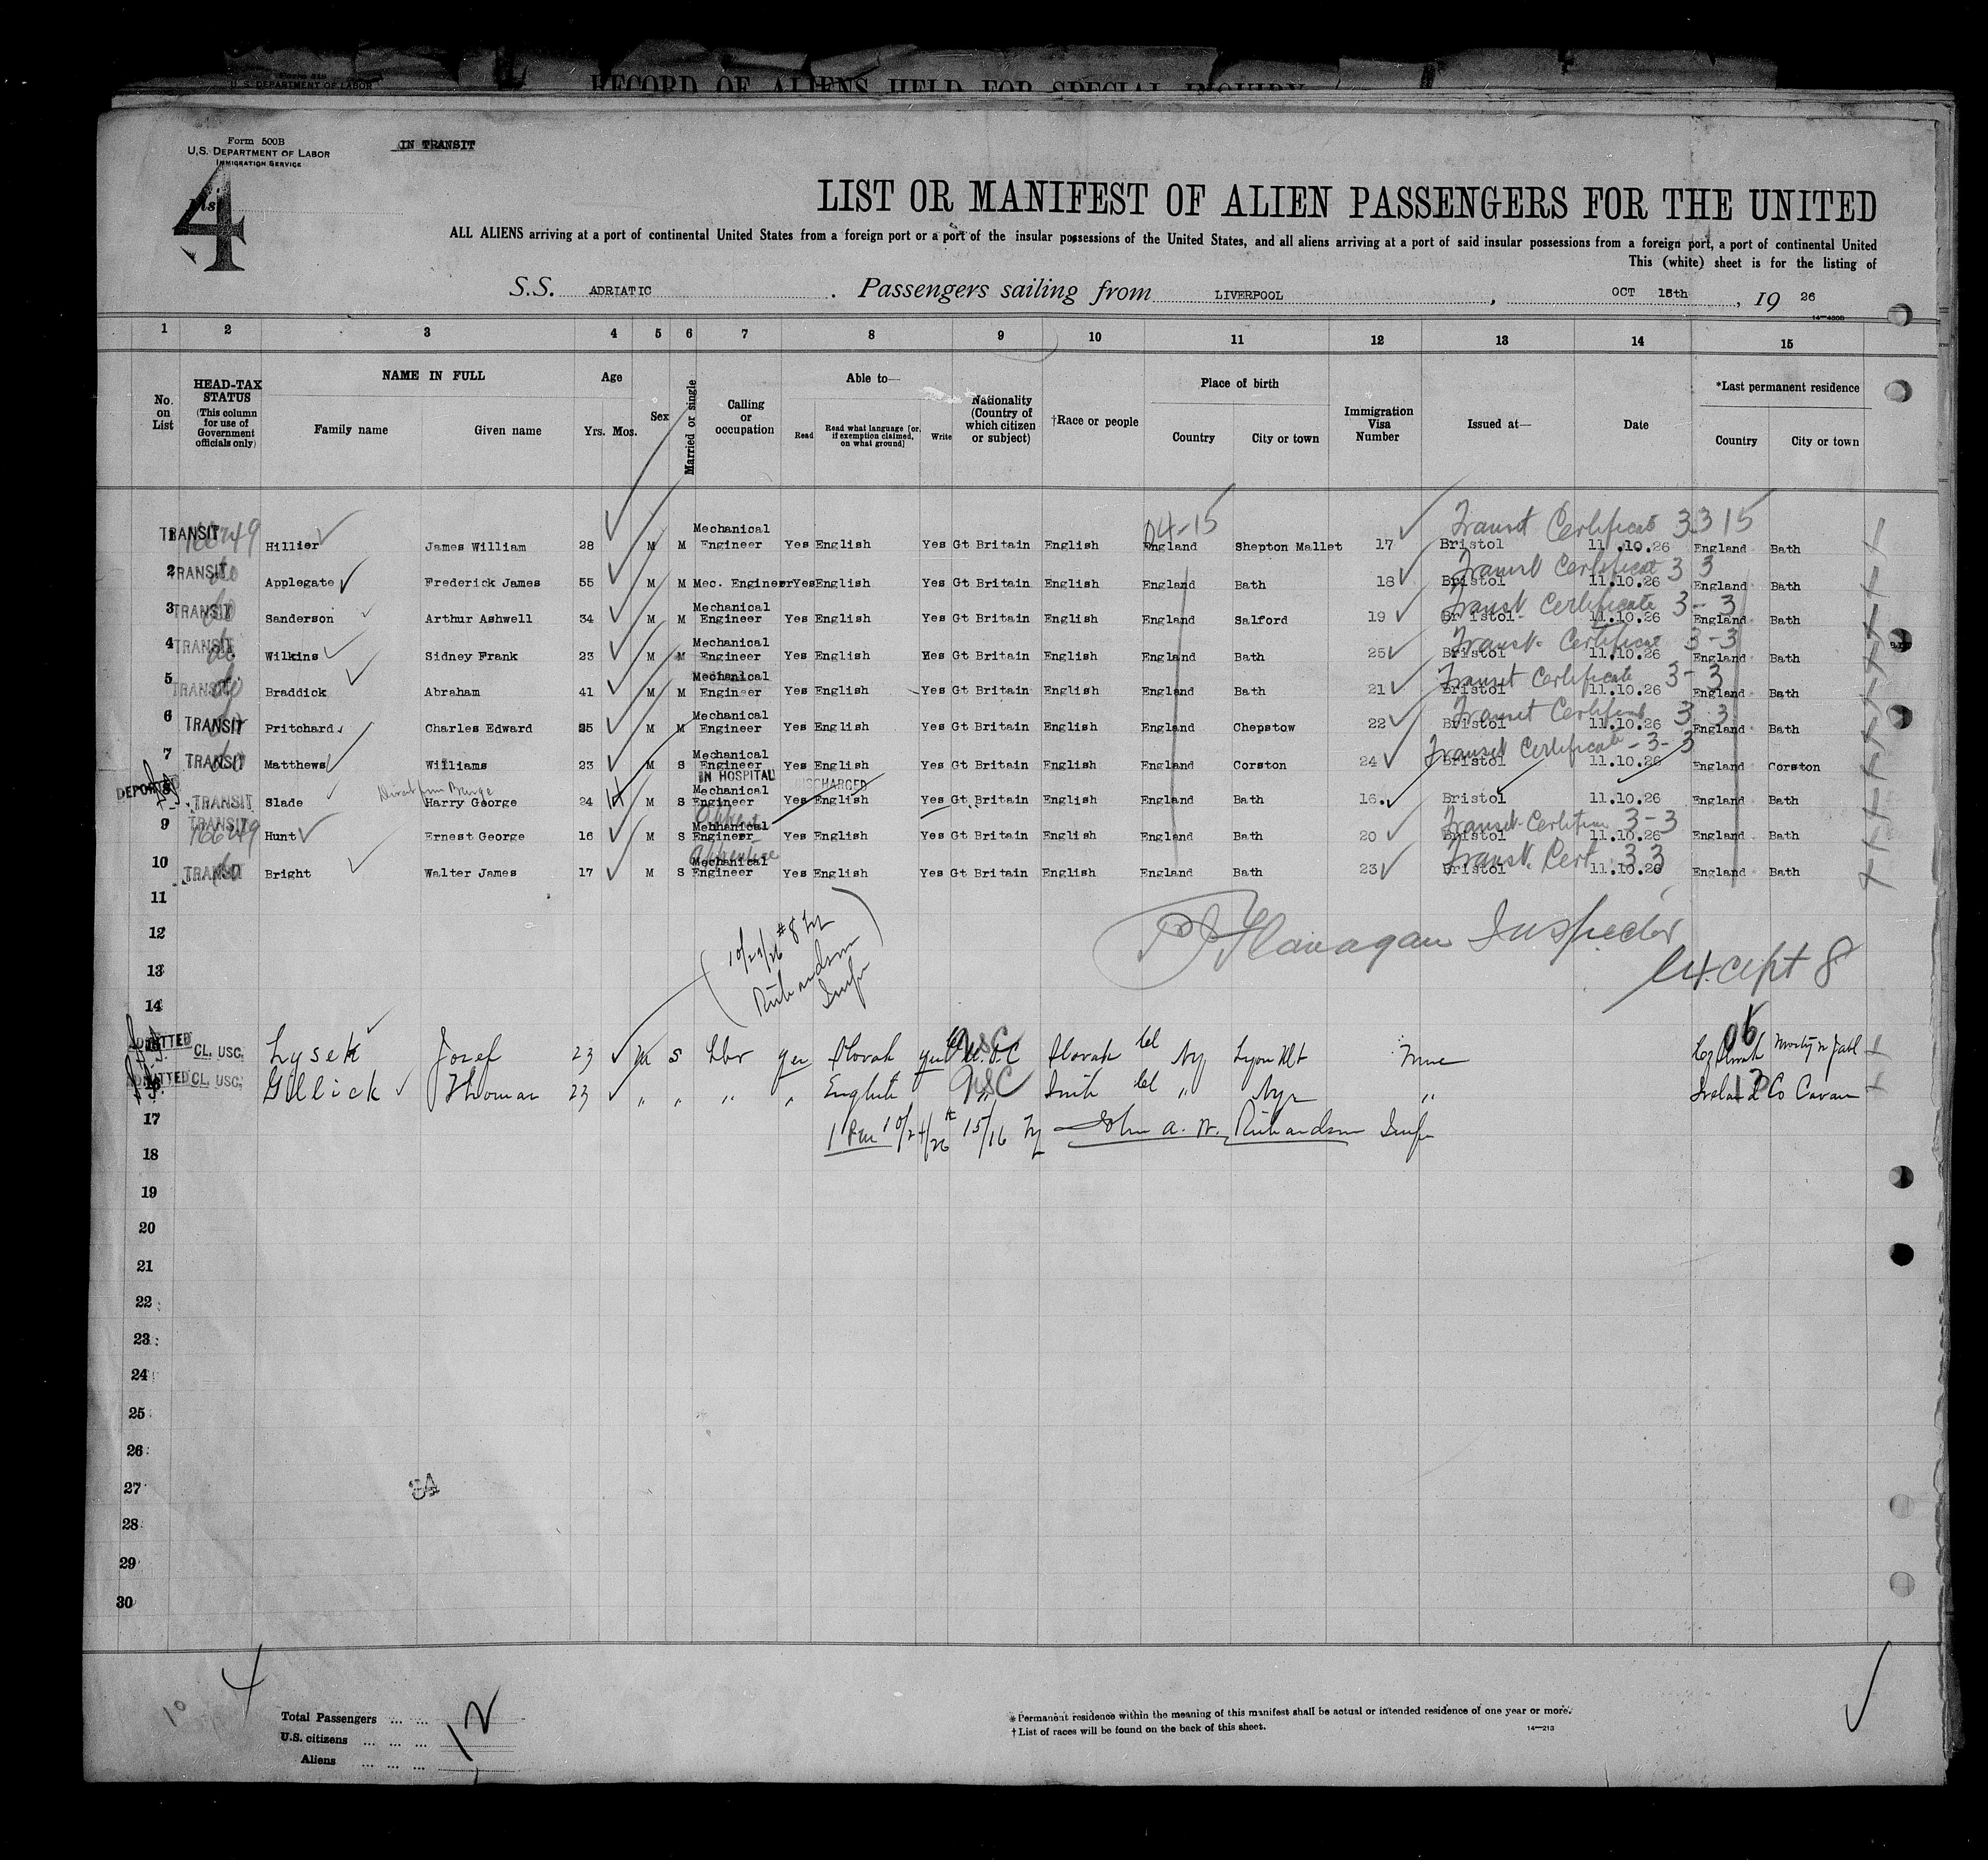 RECORD OF ALIENS HELD FOR SPECIAL INQUIRY
U. S. DEPARTMENT OF LABOR
Form 500B
U.S. DEPARTMENT OF LABOR
IMMIGRATION SERVICE
IN TRANSIT
4
LIST OR MANIFEST OF ALIEN PASSENGERS FOR THE UNITED
ALL ALIENS arriving at a port of continental United States from a foreign port or a port of the insular possessions of the United States, and all aliens arriving at a port of said insular possessions from a foreign port, a port of continental United
This (white) sheet is for the listing of
S.S. ADRIATIC. Passengers sailing from LIVERPOOL, OCT 15th, 19 26
1 2 3 4 5 6 7 8 9 10 11 12 13 14 15
No. on List
HEAD-TAX STATUS (This column for use of Government officials only)
NAME IN FULL
Family name Given name
Age
Yrs. Mos.
Sex
Married or single
Calling or occupation
Able to—
Read Read what language [or, if exemption claimed, on what ground] Write
Nationality (Country of which citizen or subject)
†Race or people
Place of birth
Country City or town
Immigration Visa Number
Issued at—
Date
*Last permanent residence
Country City or town
04-15 Transit Certificate 3315
TRANSIT Hillier James William 28 M M Mechanical Engineer Yes English Yes Gt Britain English England Shepton Mallet 17 Bristol 11.10.26 England Bath
Transit Certificate 3 3
2 TRANSIT Applegate Frederick James 55 M M Mec. Engineer Yes English Yes Gt Britain English England Bath 18 Bristol 11.10.26 England Bath
Transit Certificate 3-3
3 TRANSIT Sanderson Arthur Ashwell 34 M M Mechanical Engineer Yes English Yes Gt Britain English England Salford 19 Bristol 11.10.26 England Bath
Transit Certificate 3-3
4 TRANSIT Wilkins Sidney Frank 23 M M Mechanical Engineer Yes English Yes Gt Britain English England Bath 25 Bristol 11.10.26 England Bath
Transit Certificate 3-3
5 TRANSIT Braddick Abraham 41 M M Mechanical Engineer Yes English Yes Gt Britain English England Bath 21 Bristol 11.10.26 England Bath
Transit Certificate 3 3
6 TRANSIT Pritchard Charles Edward 25 M M Mechanical Engineer Yes English Yes Gt Britain English England Chepstow 22 Bristol 11.10.26 England Bath
Transit Certificate -3-3
7 TRANSIT Matthews Williams 23 M S Mechanical Engineer Yes English Yes Gt Britain English England Corston 24 Bristol 11.10.26 England Corston
IN HOSPITAL DISCHARGED
DEPORTED TRANSIT Slade Harry George 24 M S Mechanical Engineer Yes English Yes Gt Britain English England Bath 16. Bristol 11.10.26 England Bath
Transit Certificate 3-3
9 TRANSIT Hunt Ernest George 16 M S Mechanical Engineer Yes English Yes Gt Britain English England Bath 20 Bristol 11.10.26 England Bath
Apprentice Transit Cert. 3 3
10 TRANSIT Bright Walter James 17 M S Mechanical Engineer Yes English Yes Gt Britain English England Bath 23 Bristol 11.10.26 England Bath
11
12 Flanagan Inspector
10/29/26 #8 by
Richardson
Insp
13 Except 8
14
ADMITTED CL. USC. Lysek Jozef 23 M S Lbr yes Slovak yes U.S.C Slovak NY Lyon Mt None
ADMITTED CL. USC. Gillick Thomas 23 " " " " English USC Irish " Ny " Ireland Co Cavan
17 10/24/26 15/16 by John A. W. Richardson Insp
18
19
20
21
22
23
24
25
26
27
34
28
29
30
4
10
Total Passengers ... ... 12
U.S. citizens ... ... ...
Aliens ... ... ...
*Permanent residence within the meaning of this manifest shall be actual or intended residence of one year or more.
†List of races will be found on the back of this sheet.
14—213